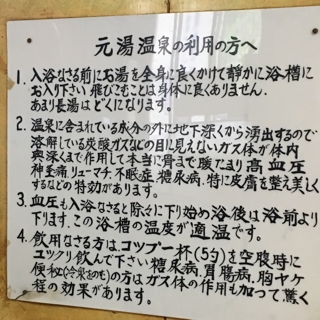 元湯温泉の利用の方へ
1. 入浴なさる前にお湯を全身に良くかけて静かに浴槽に
お入り下さい 飛びこむことは身体に良くありません.
あまり長湯はどくになります。
2. 温泉に含まれている水分の外に地下深くから湧出するので
溶解している炭酸ガスなどの目に見えないガス体が体内
奥深くまで作用して本当に骨まで暖たまり高血圧
神圣痛.リューマチ.不眠症.糖尿病.特に皮膚を整え美しく
するなどの特効があります。
3. 血圧も入浴なさると除々に下り始め浴後は浴前より
下ります.この浴槽の温度が適温です。
4. 飲用なさる方はコップ一杯(5勺)を空腹時に
ユックリ飲んで下さい糖尿病.胃腸病.胸ヤケ
便秘(冷泉をのむ)の方はガス体の作用も加って驚く
程の効果があります。